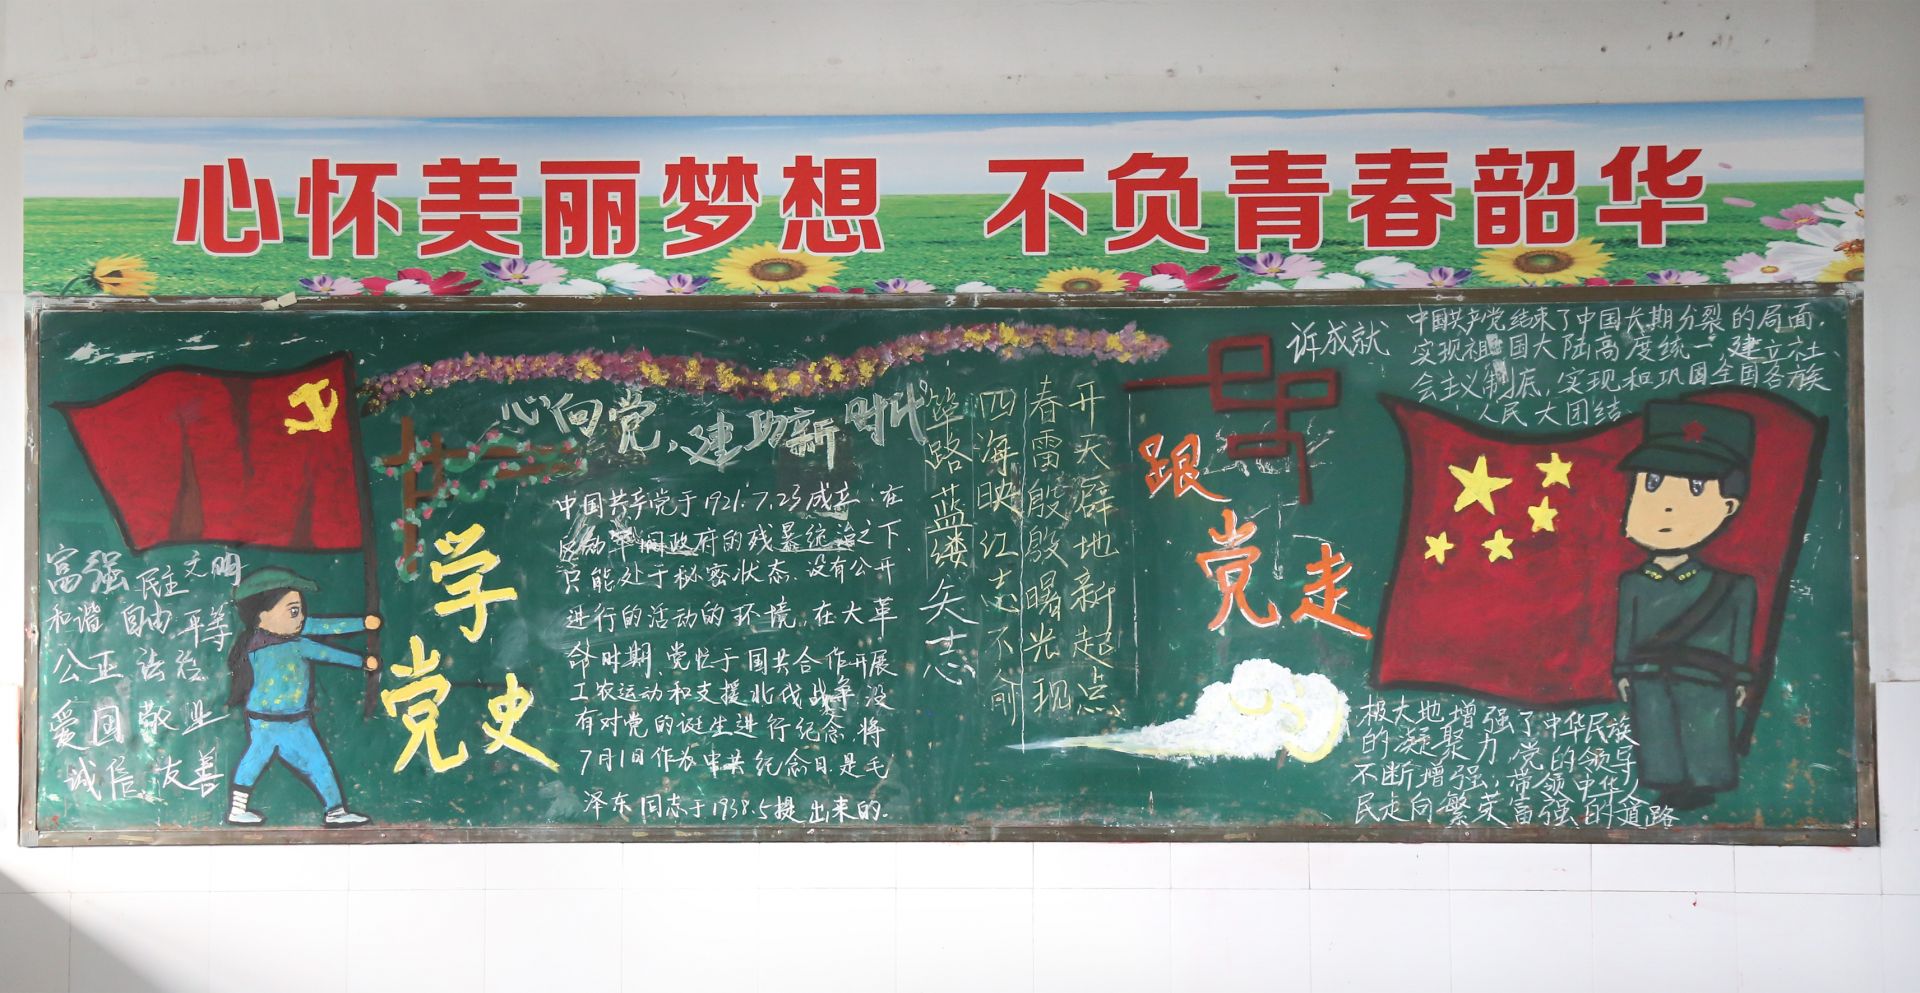 心怀美丽梦想 不负青春韶华
心向党,建功新时代
富强 民主 文明
和谐 自由 平等
公正 法治
爱国 敬业
诚信 友善
学党史
中国共产党于1921.7.23成立.在
反动军阀政府的残暴统治之下.
只能处于秘密状态.没有公开
进行的活动的环境.在大革
命时期.党忙于国共合作开展
工农运动和支援北伐战争.没
有对党的诞生进行纪念.将
7月1日作为中共纪念日.是毛
泽东同志于1938.5提出来的.
开天辟地新起点
春雷殷殷曙光现
四海映红志不渝
筚路蓝缕矢志
跟党走
诉成就
中国共产党结束了中国长期分裂的局面.
实现祖国大陆高度统一 建立社
会主义制底,实现和巩固全国各族
人民大团结
极大地增强了中华民族
的凝聚力,党的领导
不断增强,带领中华人
民走向繁荣富强的道路